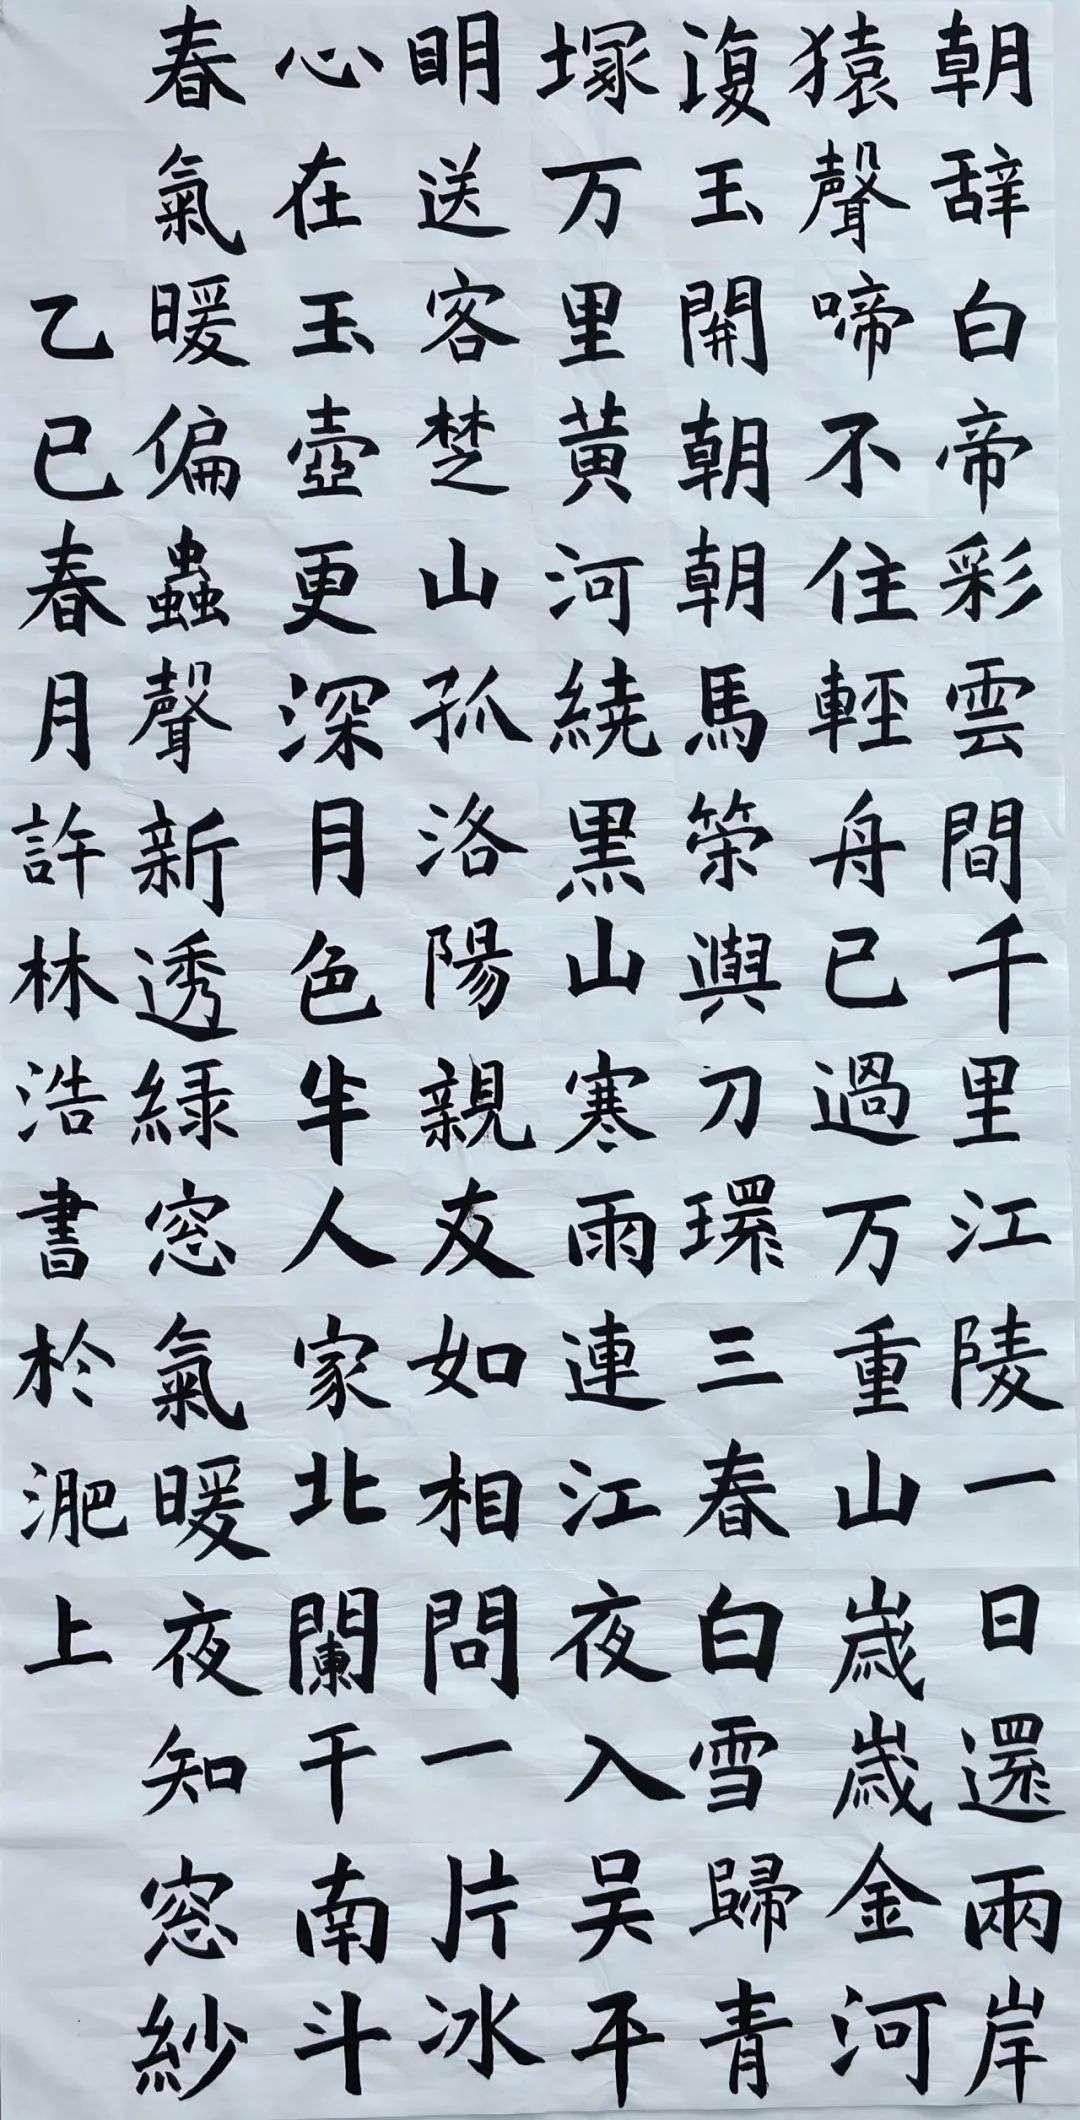 朝辭白帝彩雲間千里江陵一日還兩岸
猿聲啼不住輕舟已過万重山歲歲金河
復玉開朝朝馬策與刀環三春白雪歸青
塚万里黃河繞黑山寒雨連江夜入吴平
明送客楚山孤洛陽親友如相問一片冰
心在玉壺更深月色半人家北闌干南斗
春氣暖偏蟲聲新透綠窓氣暖夜知窓紗
乙巳春月許林浩書於淝上